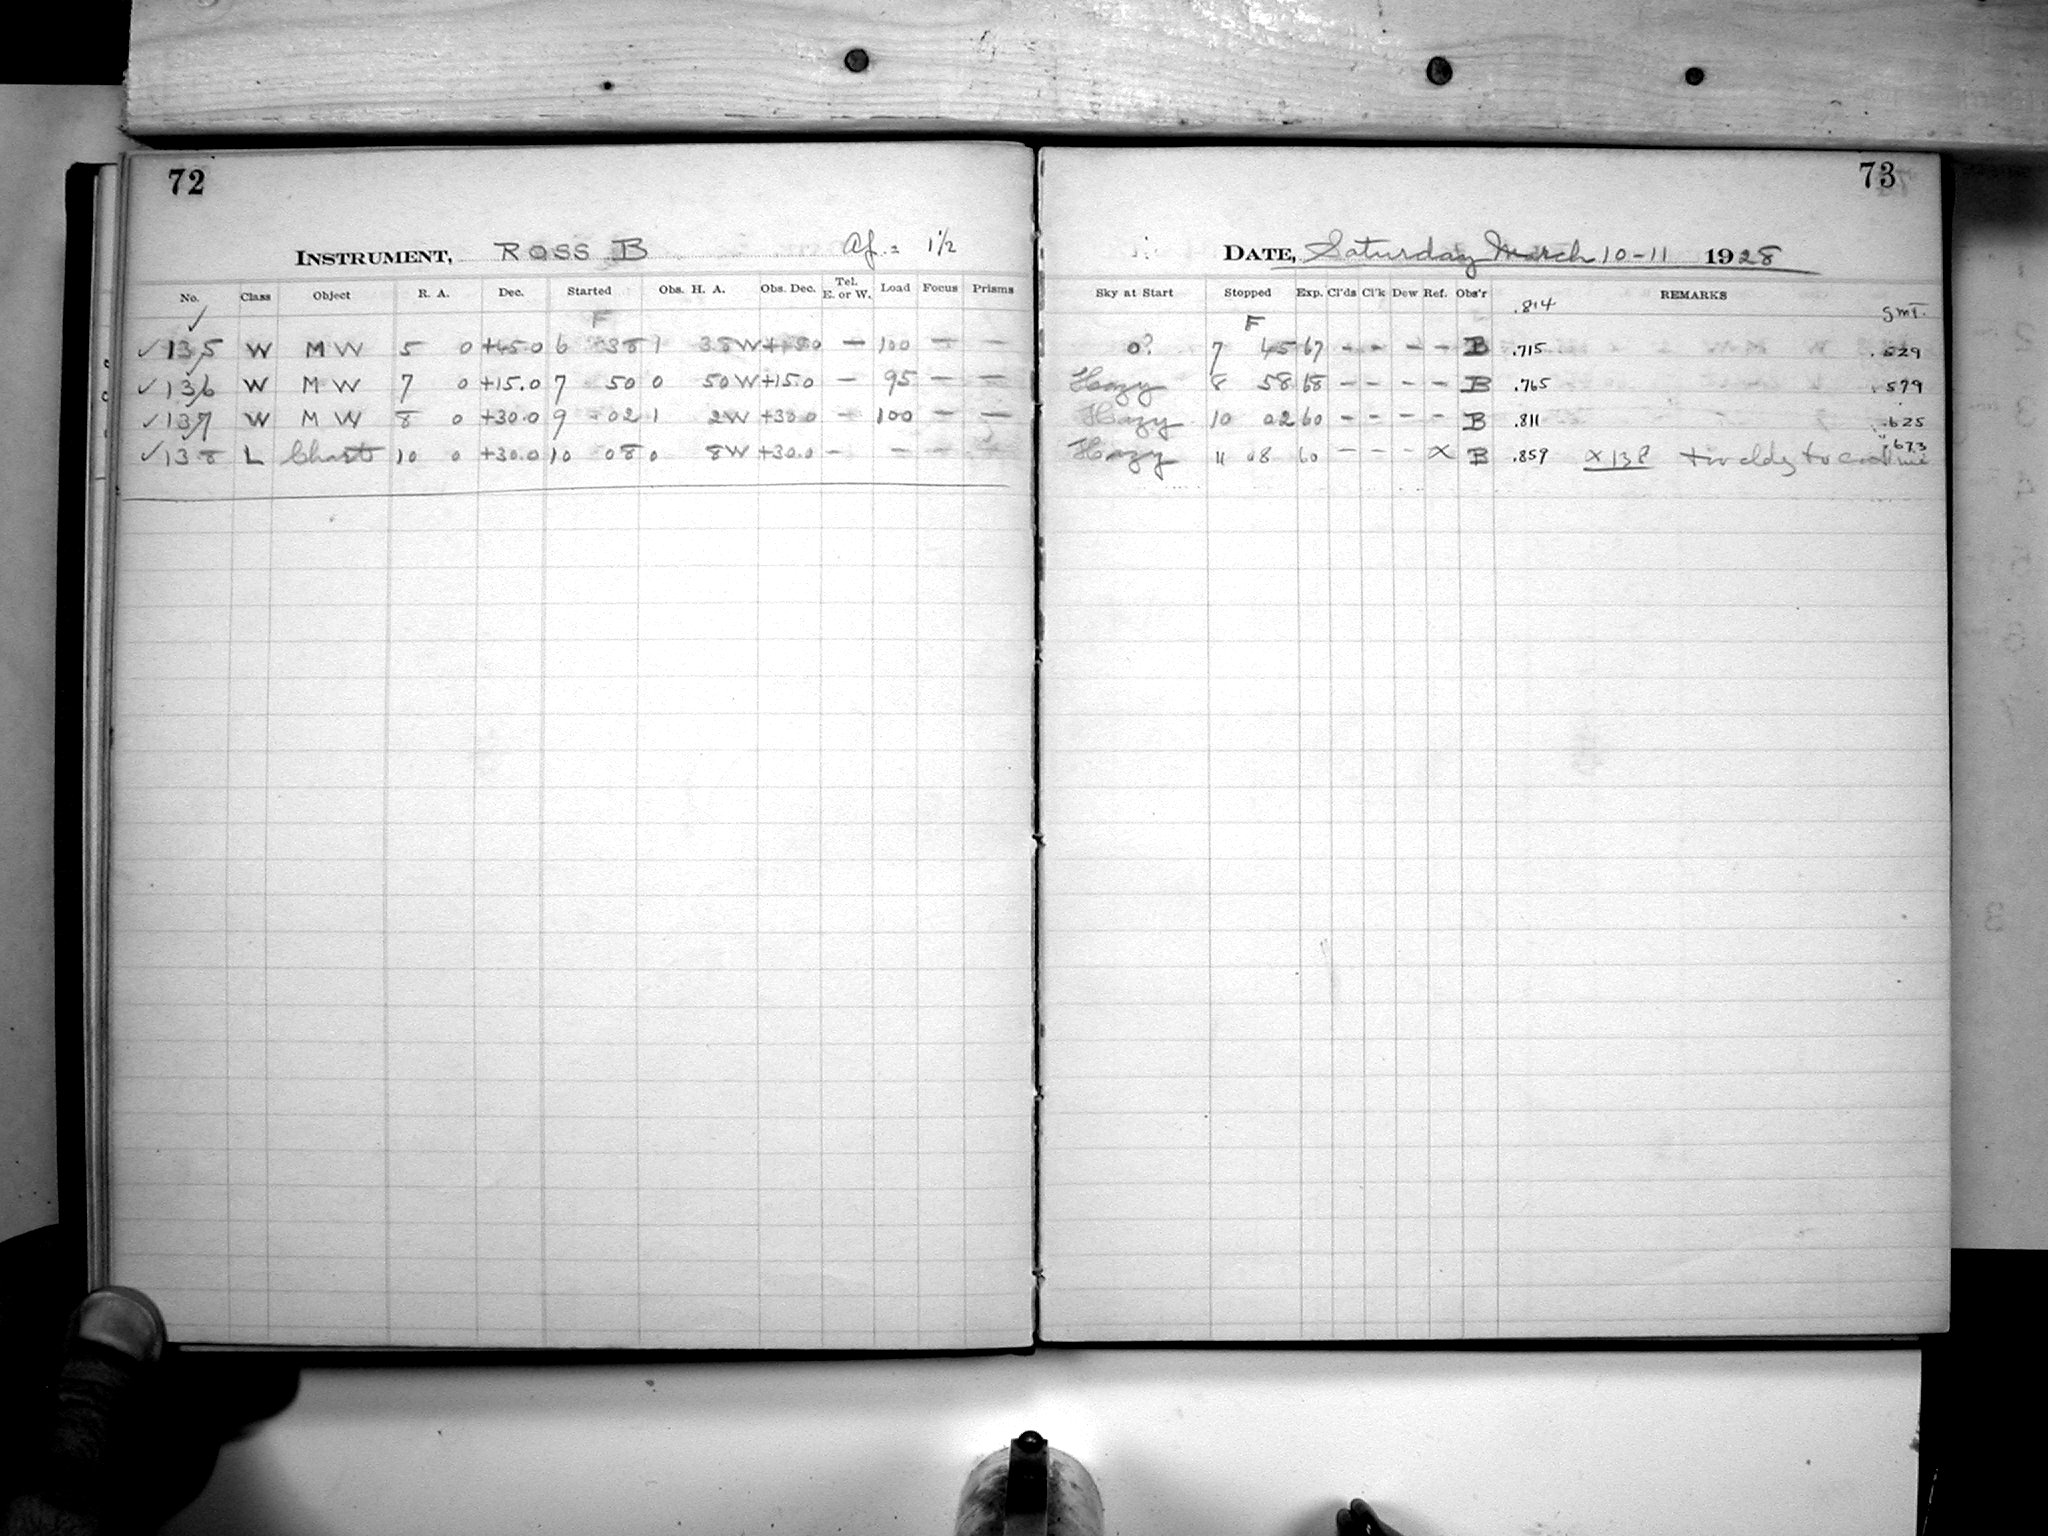 72
INSTRUMENT, ROSS B Af = 1 1/2
No. Class Object R. A. Dec. Started Obs. H. A. Obs. Dec. Tel. E. or W. Load Focus Prisms
✓ F
✓ 135 W M W 5 0 +45.0 6 38 1 38W — 100 — —
✓ 136 W M W 7 0 +15.0 7 50 0 50W +15.0 — 95 — —
✓ 137 W M W 8 0 +30.0 9 02 1 2W +30.0 — 100 — —
✓ 138 L Chart 10 0 +30.0 10 08 0 8W +30.0 — — — —
73
DATE, Saturday March 10-11 1928
Sky at Start Stopped Exp. Cl'ds Cl'k Dew Ref. Obs'r REMARKS
F .814 GMT.
0? 7 45 67 - - - - B .715 .529
Hazy 8 58 68 - - - - B .765 .579
Hazy 10 02 60 - - - - B .811 .625
Hazy 11 08 60 - - - X B .859 X 138 to .673